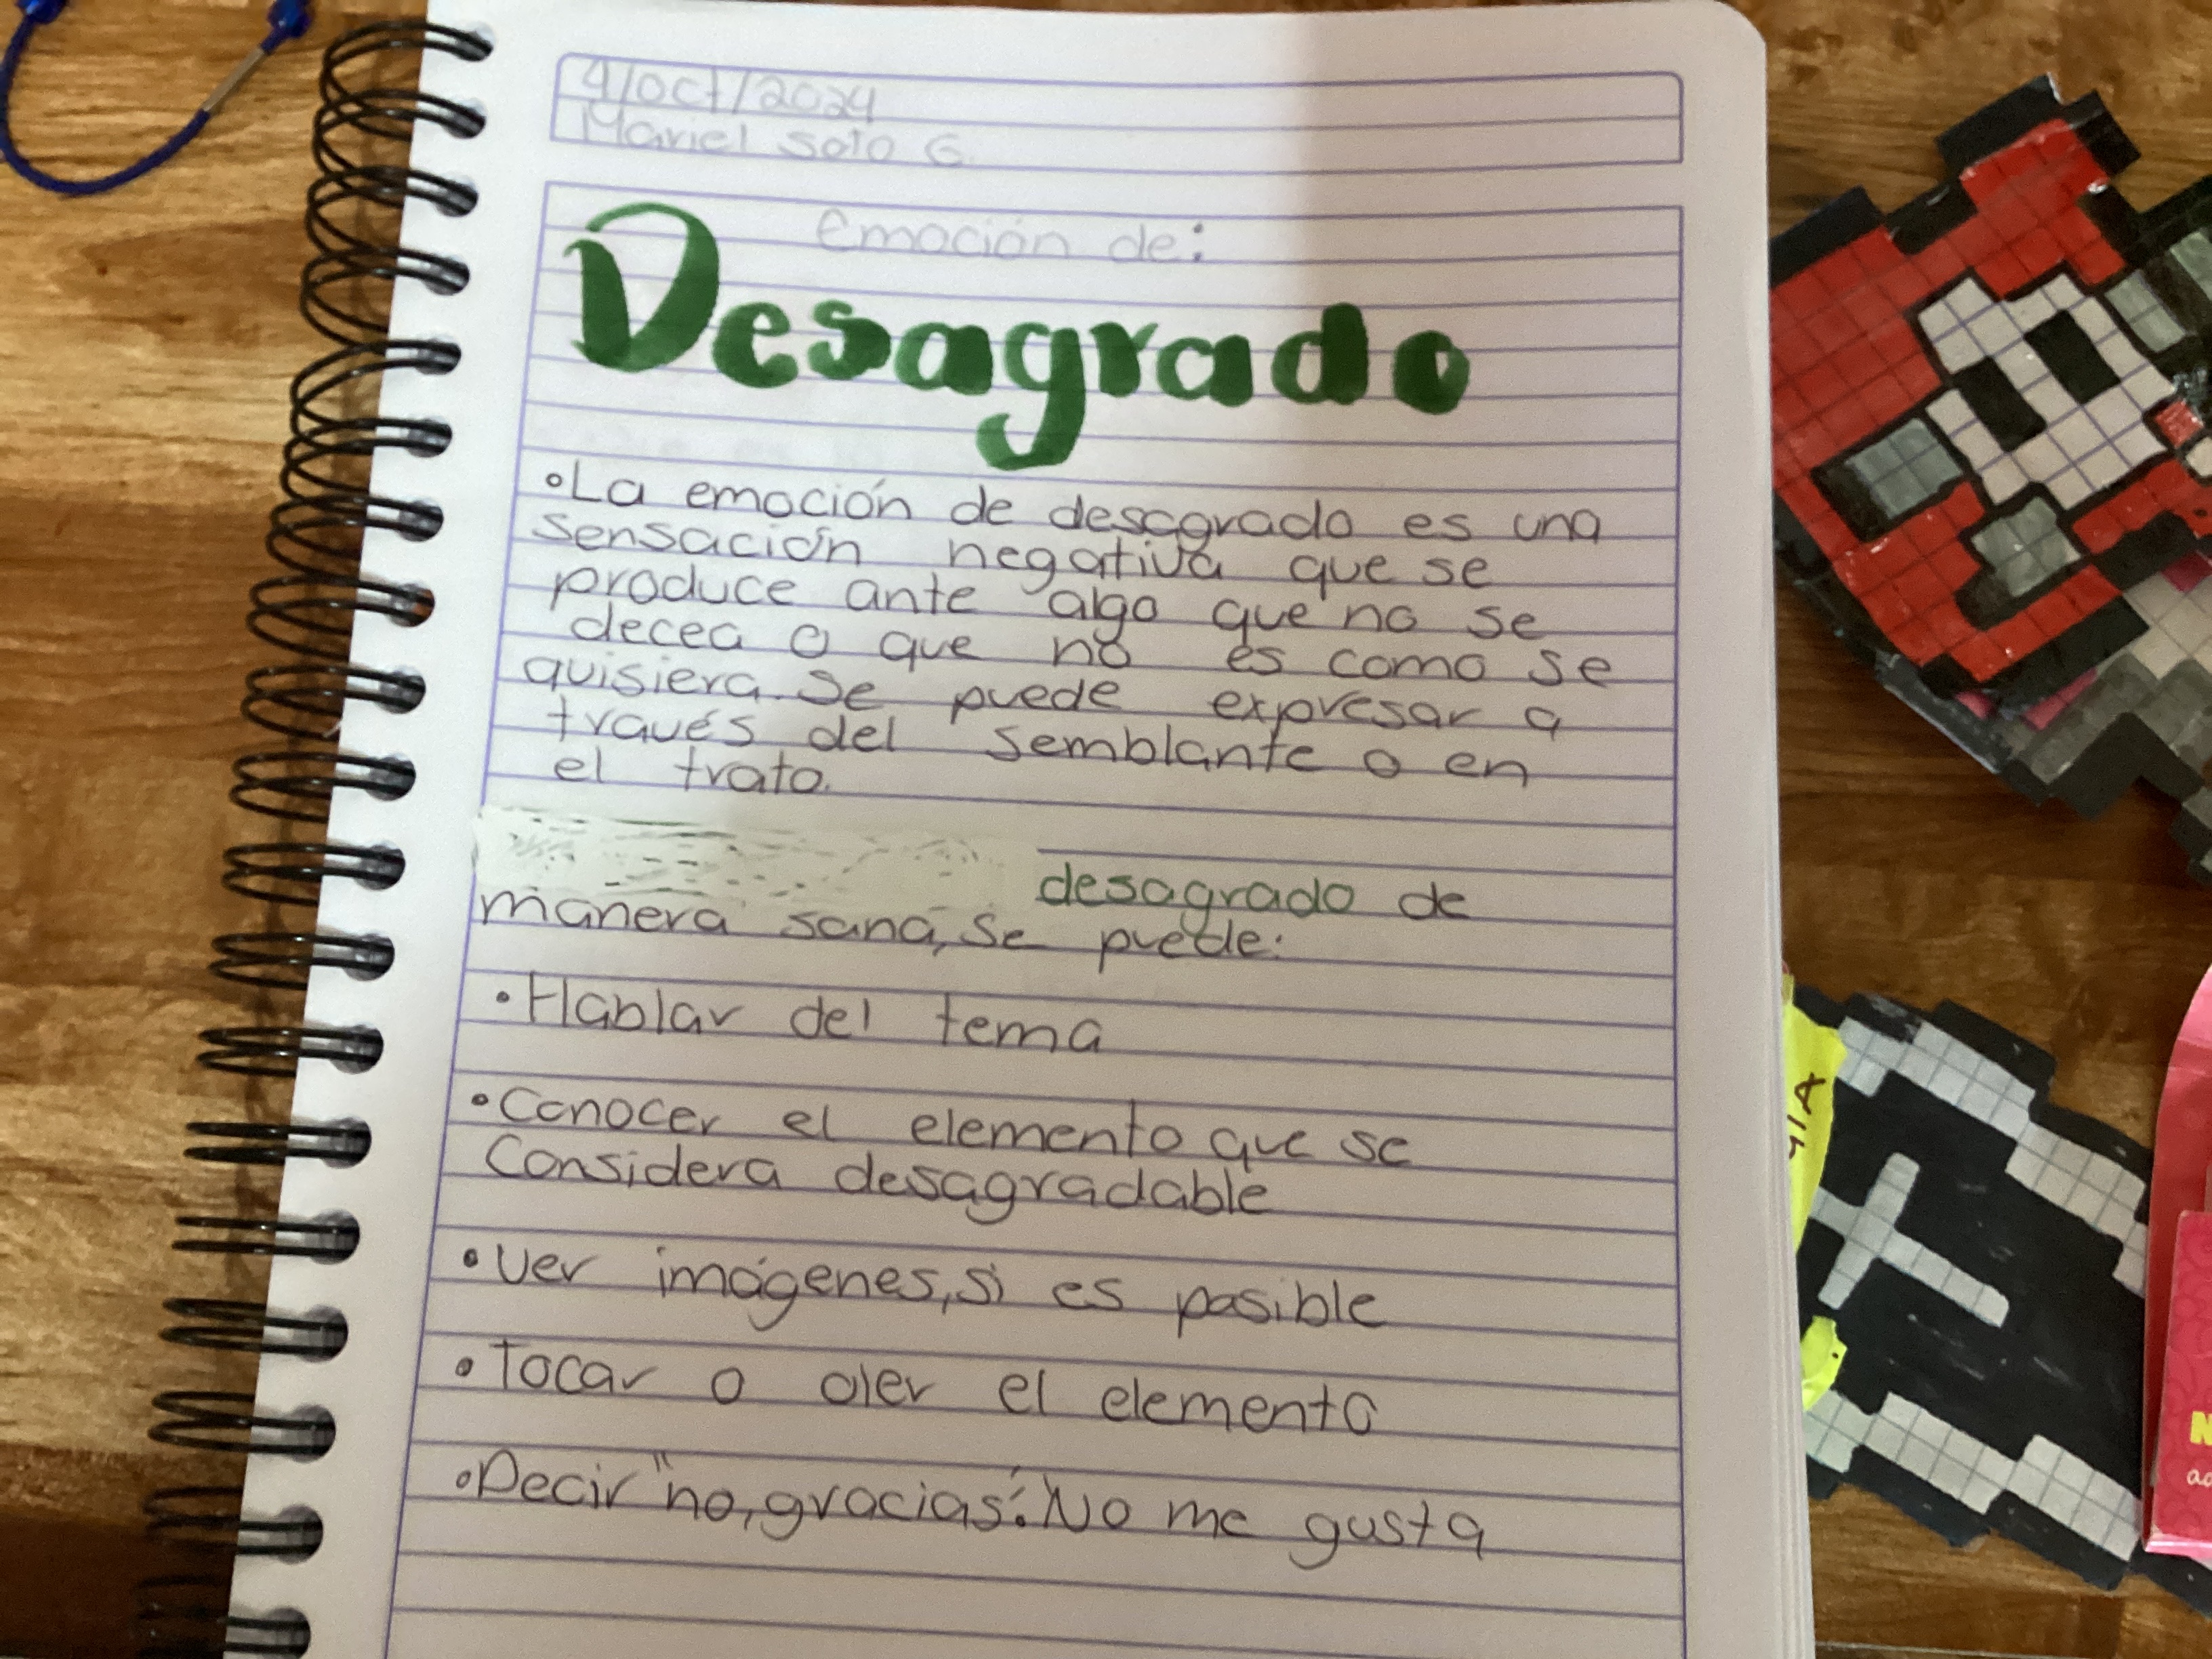 4/oct/2024
Mariel Soto G.
Emoción de:
Desagrado
•La emoción de desagrado es una
sensación negativa que se
produce ante algo que no se
decea o que no es como se
quisiera. Se puede expresar a
través del semblante o en
el trato.
desagrado de
manera sana, se puede:
•Hablar del tema
•Conocer el elemento que se
considera desagradable
•Ver imágenes, si es posible
•Tocar o oler el elemento
•Decir "no, gracias". No me gusta